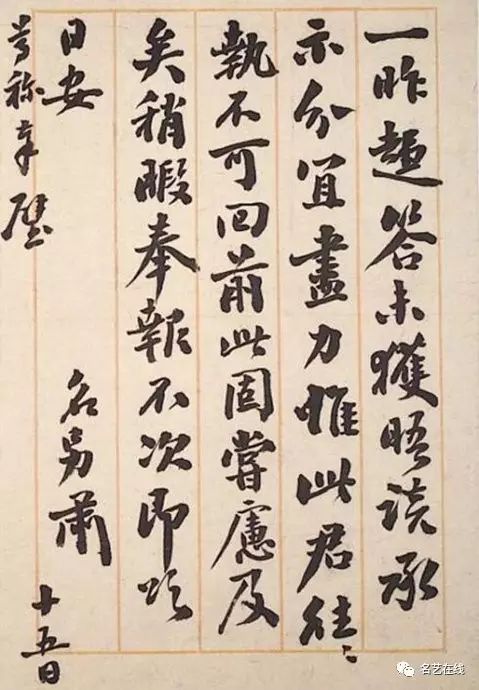 一昨趨答未獲晤談承
示分宜盡力惟此君往〻
執不可回前此固嘗慮及
矣稍暇奉報不次即頌
日安 名另肅 十五日
尊称奉璧
名艺在线